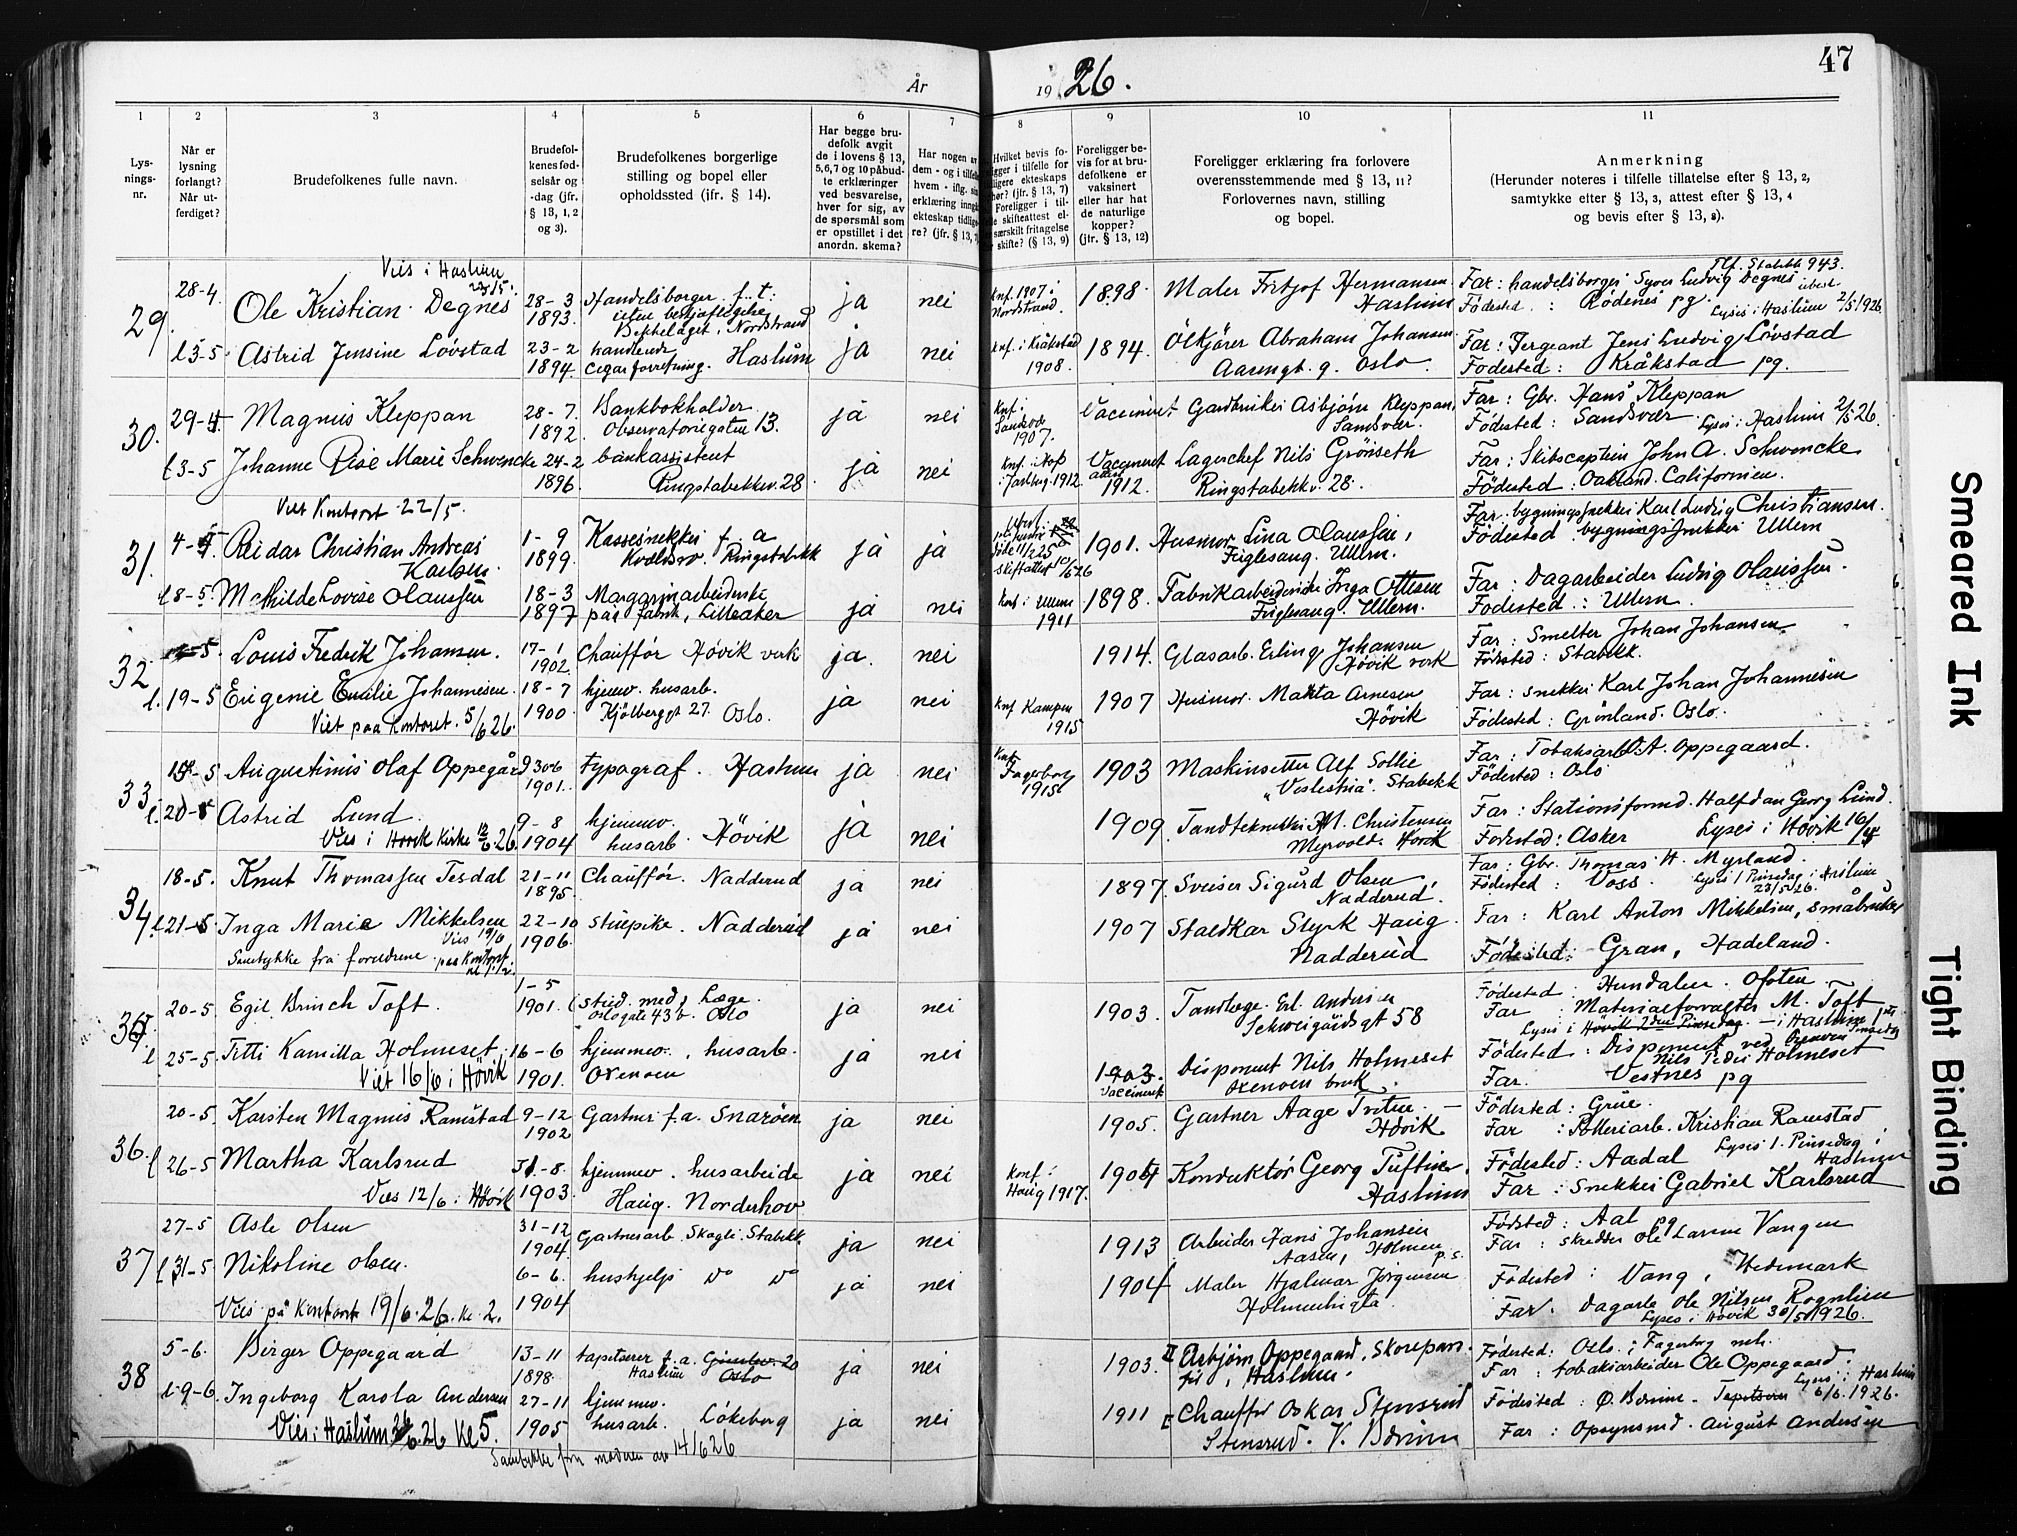 47
År 1926.
1 2 3 4 5 6 7 8 9 10 11
Lysningsnr.
Når er lysning forlangt? Når utferdiget?
Brudefolkenes fulle navn.
Brudefolkenes fødselsår og -dag (jfr. § 13, 1, 2 og 3).
Brudefolkenes borgerlige stilling og bopel eller opholdssted (jfr. § 14).
Har begge brudefolk avgit de i lovens § 13, 5, 6, 7 og 10 påbudte erklæringer ved besvarelse, hver for sig, av de spørsmål som er opstillet i det anordn. skema?
Har nogen av dem - og i tilfelle hvem - iflg. sin erklæring inngått ekteskap tidligere? (jfr. § 13,
Hvilket bevis foreligger i tilfelle for tidligere ekteskaps ophør? (jfr. § 13, 7) Foreligger i tilfelle skifteattest el. særskilt fritagelse for skifte? (§ 13, 9)
Foreligger bevis for at brudefolkene er vaksinert eller har hat de naturlige kopper? (jfr. § 13, 12)
Foreligger erklæring fra forlovere overensstemmende med § 13, 11? Forlovernes navn, stilling og bopel.
Anmerkning
(Herunder noteres i tilfelle tillatelse efter § 13, 2, samtykke efter § 13, 3, attest efter § 13, 4 og bevis efter § 13, 8).
Vies i Haslum
29. 28-4. Ole Kristian Degnes 28-3 1893. Handelsborger f. t. Bekkelaget, Nordstrand ja nei Knf. 1907 i Nordstrand. 1898. Maler Fritjof Hermansen Haslum Far: handelsborger Syver Ludvig Degnes Tlf. Stabekk 943.
Fødested: Rødenes pg. Lyses i Haslum 2/5 1926.
l 3-5 Astrid Jensine Løvstad 23-2 1894. handlende cigarforretning. Haslum ja nei knf. i Kråkstad 1908. 1894. Ølkjører Abraham Johansen Oslo. Far: Sergeant Jens Ludvig Løvstad
Fødested: Kråkstad pg.
30. 29-4 Magnus Kleppan 28-7. 1892. Bankbokholder Observatoriegaten 13. ja nei Knf. i Sandsvær 1907. Vaccineret Gardbruker Asbjørn Kleppan, Sandsvær. Far: Gbr. Hans Kleppan
Fødested: Sandsvær. Lyses i Haslum 2/5 26.
l 3-5 Johanne Rise Marie Schwencke 24-2 1896. bankassistent Ringstabekkv. 28. ja nei Vaccineret attest 1912. Lagerchef Nils Grønseth Ringstabekkv. 28. Far: Skibscaptein John A. Schwencke
Fødested: Oakland. Californien.
Viet Kontoret 22/5.
31. 4-5 Reidar Christian Andreas Karlsen. 1-9 1899. Kassesnekker f. a Ringstabekk ja ja skiftattest 1901. Husmor Lina Olaussen, Fuglesang. Ullern. Far. bygningssnekker Karl Ludvig Christiansen.
Fødested bygningssnekker Ullern
l 8-5. Mathilde Lovise Olaussen 18-3 1897 Margarinarbeiderske på fabrik, Lilleaker ja nei Knf. i Ullern 1911 1898. Fabrikarbeiderske Inga Ottesen Fuglesang. Ullern. Far: Dagarbeider Ludvig Olaussen.
Fødested: Ullern.
32. Louis Fredrik Johansen. 17-1 1902. Chauffør Høvik verk ja. nei 1914. Glasarb. Erling Johansen Høvik verk Far: Smelter Johan Johansen.
Fødested: Stabekk.
l. 19-5 Eugenie Emilie Johannesen. 18-7 1900. hjemmev. husarb. Kjølberggt 27. Oslo. ja nei Knf Kampen 1915 1907 Husmor. Marta Arnesen Høvik Far: snekker Karl Johan Johannesen
Viet paa Kontoret. 5/6 26. Fødested: Grønland. Oslo.
33. Augustinus Olaf Oppegård 30-6 1901. typograf. Haslum ja nei Fagerborg 1915 1903 Maskinsetter Alf Sollie "Veslestua". Stabekk Far: Tobaksarb. O. A. Oppegaard.
Fødested: Oslo
l. 20-5 Astrid Lund. 9-8 1904 hjemmev. husarb. Høvik ja nei 1909. Tandtekniker M. Christensen Myrvold. Høvik Far: Stationsformd. Halfdan Georg Lund.
Vies i Høvik Kirke 12/6 26 Fødested: Asker Lyses i Høvik 16/5
34. 18-5. Knut Thomassen Tesdal 21-11 1895. Chauffør. Nadderud ja nei 1897. Sveiser Sigurd Olsen Nadderud. Far: Gbr. Thomas H. Myrland.
Fødested: Voss. Lyses 1 Pinsedag i Haslum 23/5 26.
l. 21-5 Inga Marie Mikkelsen 22-10 1906. stuepike. Nadderud ja nei 1907 Staldkar Styrk Haug. Nadderud Far: Karl Anton Mikkelsen, småbruker
Samtykke fra foreldrene. Vies 19/6 paa Kontoret Fødested: Gran, Hadeland.
35. 20-5. Egil Brinch Toft. 1-5 1901. stud. med. Læge. Oslogate 43 b. Oslo ja nei 1903. Tandlæge Erl. Andersen Schweigårdsgt 58 Fødested: Hundalen. Ofoten
Far: Materialforvalter M. Toft
Lyses i Høvik 2den Pinsedag. — i Haslum 1ste Pinsedag
l 25-5. Titti Kamilla Holmeset. 16-6 1901. hjemmev., husarb. Oxenøen ja nei 1903. Vaccineret Disponent Nils Holmeset Oxenøen bruk. Fødested: Disponent ved Oxenøen Nils Peder Holmeset
Viet 16/6 i Høvik Far. Vestnes pg
36. 20-5. Karsten Magnus Ramstad 9-12 1902 Gartner f. a. Snarøen ja nei 1905. Gartner Aage Tveten Høvik Fødested: Grue.
Far: Kristian Ramstad
Lyses 1. Pinsedag i Haslum
l 26-5 Martha Karlsrud 31-8. 1903. hjemmev. husarbeide Haug. Norderhov ja nei Konf. Haug 1917. 1904 Konduktør Georg Tuftin. Haslum Fødested: Aadal
Vies 12/6 i Høvik Far: Snekker Gabriel Karlsrud
37 27-5 Asle Olsen 31-12 1904. Gartnerarb. Skogli. Stabekk ja nei 1913 Arbeider Hans Johansen Aasen, Holmen p. s. Fødsted: Aal pg
Far: skredder Ole Larsen Vangen
l 31-5 Nikoline Olsen. 6-6. 1904 hushjelp do do ja nei 1904 Maler Hjalmar Jørgensen Fødested: Vang, Hedemark
Vies på kontoret 19/6. 26. kl. 2. Far. dagarb. Ole Nilsen Rognlien
Lyses i Høvik 30/5 1926.
38 5-6. Birger Oppegaard 13-11 1898. tapetserer f. a. Haslum Oslo ja nei 1903. II Asbjørn Oppegaard, Skorepar. , Haslum. Fødested: Oslo. i Fagerborg meh.
Far: tobaksarbeider Ole Oppegaard.
l. 9-6. Ingeborg Karola Andersen 27-11 1905 hjemmev. husarb. Løkeberg ja nei 1911 I Chauffør Oskar Stensrud Stensrud. V. Bærum Fødested: Ø. Bærum. Lyses i Haslum 6/6. 1926.
Vies i Haslum 26/6. 26 kl 5. Far: Opsynsmd. August Andersen
Samtykke fra moderen av 14/6 26
Smeared Ink
Tight Binding